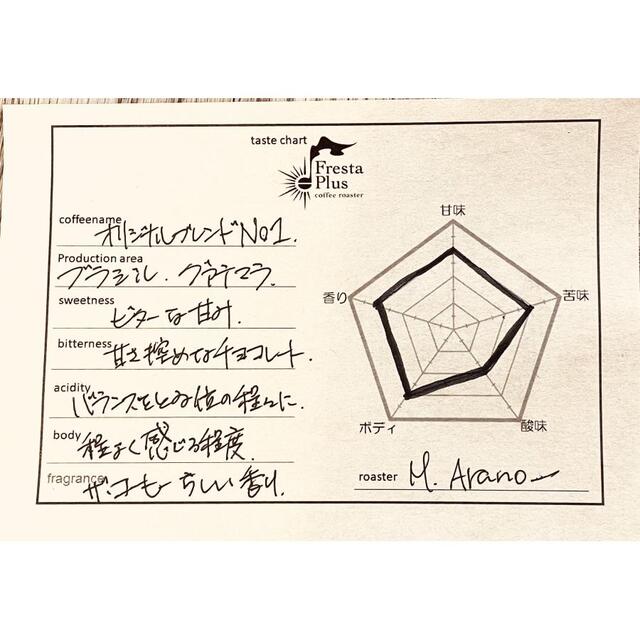 taste chart
Fresta
Plus
coffee roaster
coffeename
オリジナルブレンドNo1.
Production area
ブラジル. グァテマラ.
sweetness
ビターな甘み.
bitterness
甘さ控めなチョコレート.
acidity
バランスをとる位の程々に.
body
程よく感じる程度.
fragrance
ザ・コーヒーらしい香り.
甘味
苦味
酸味
ボディ
香り
roaster
M. Arano